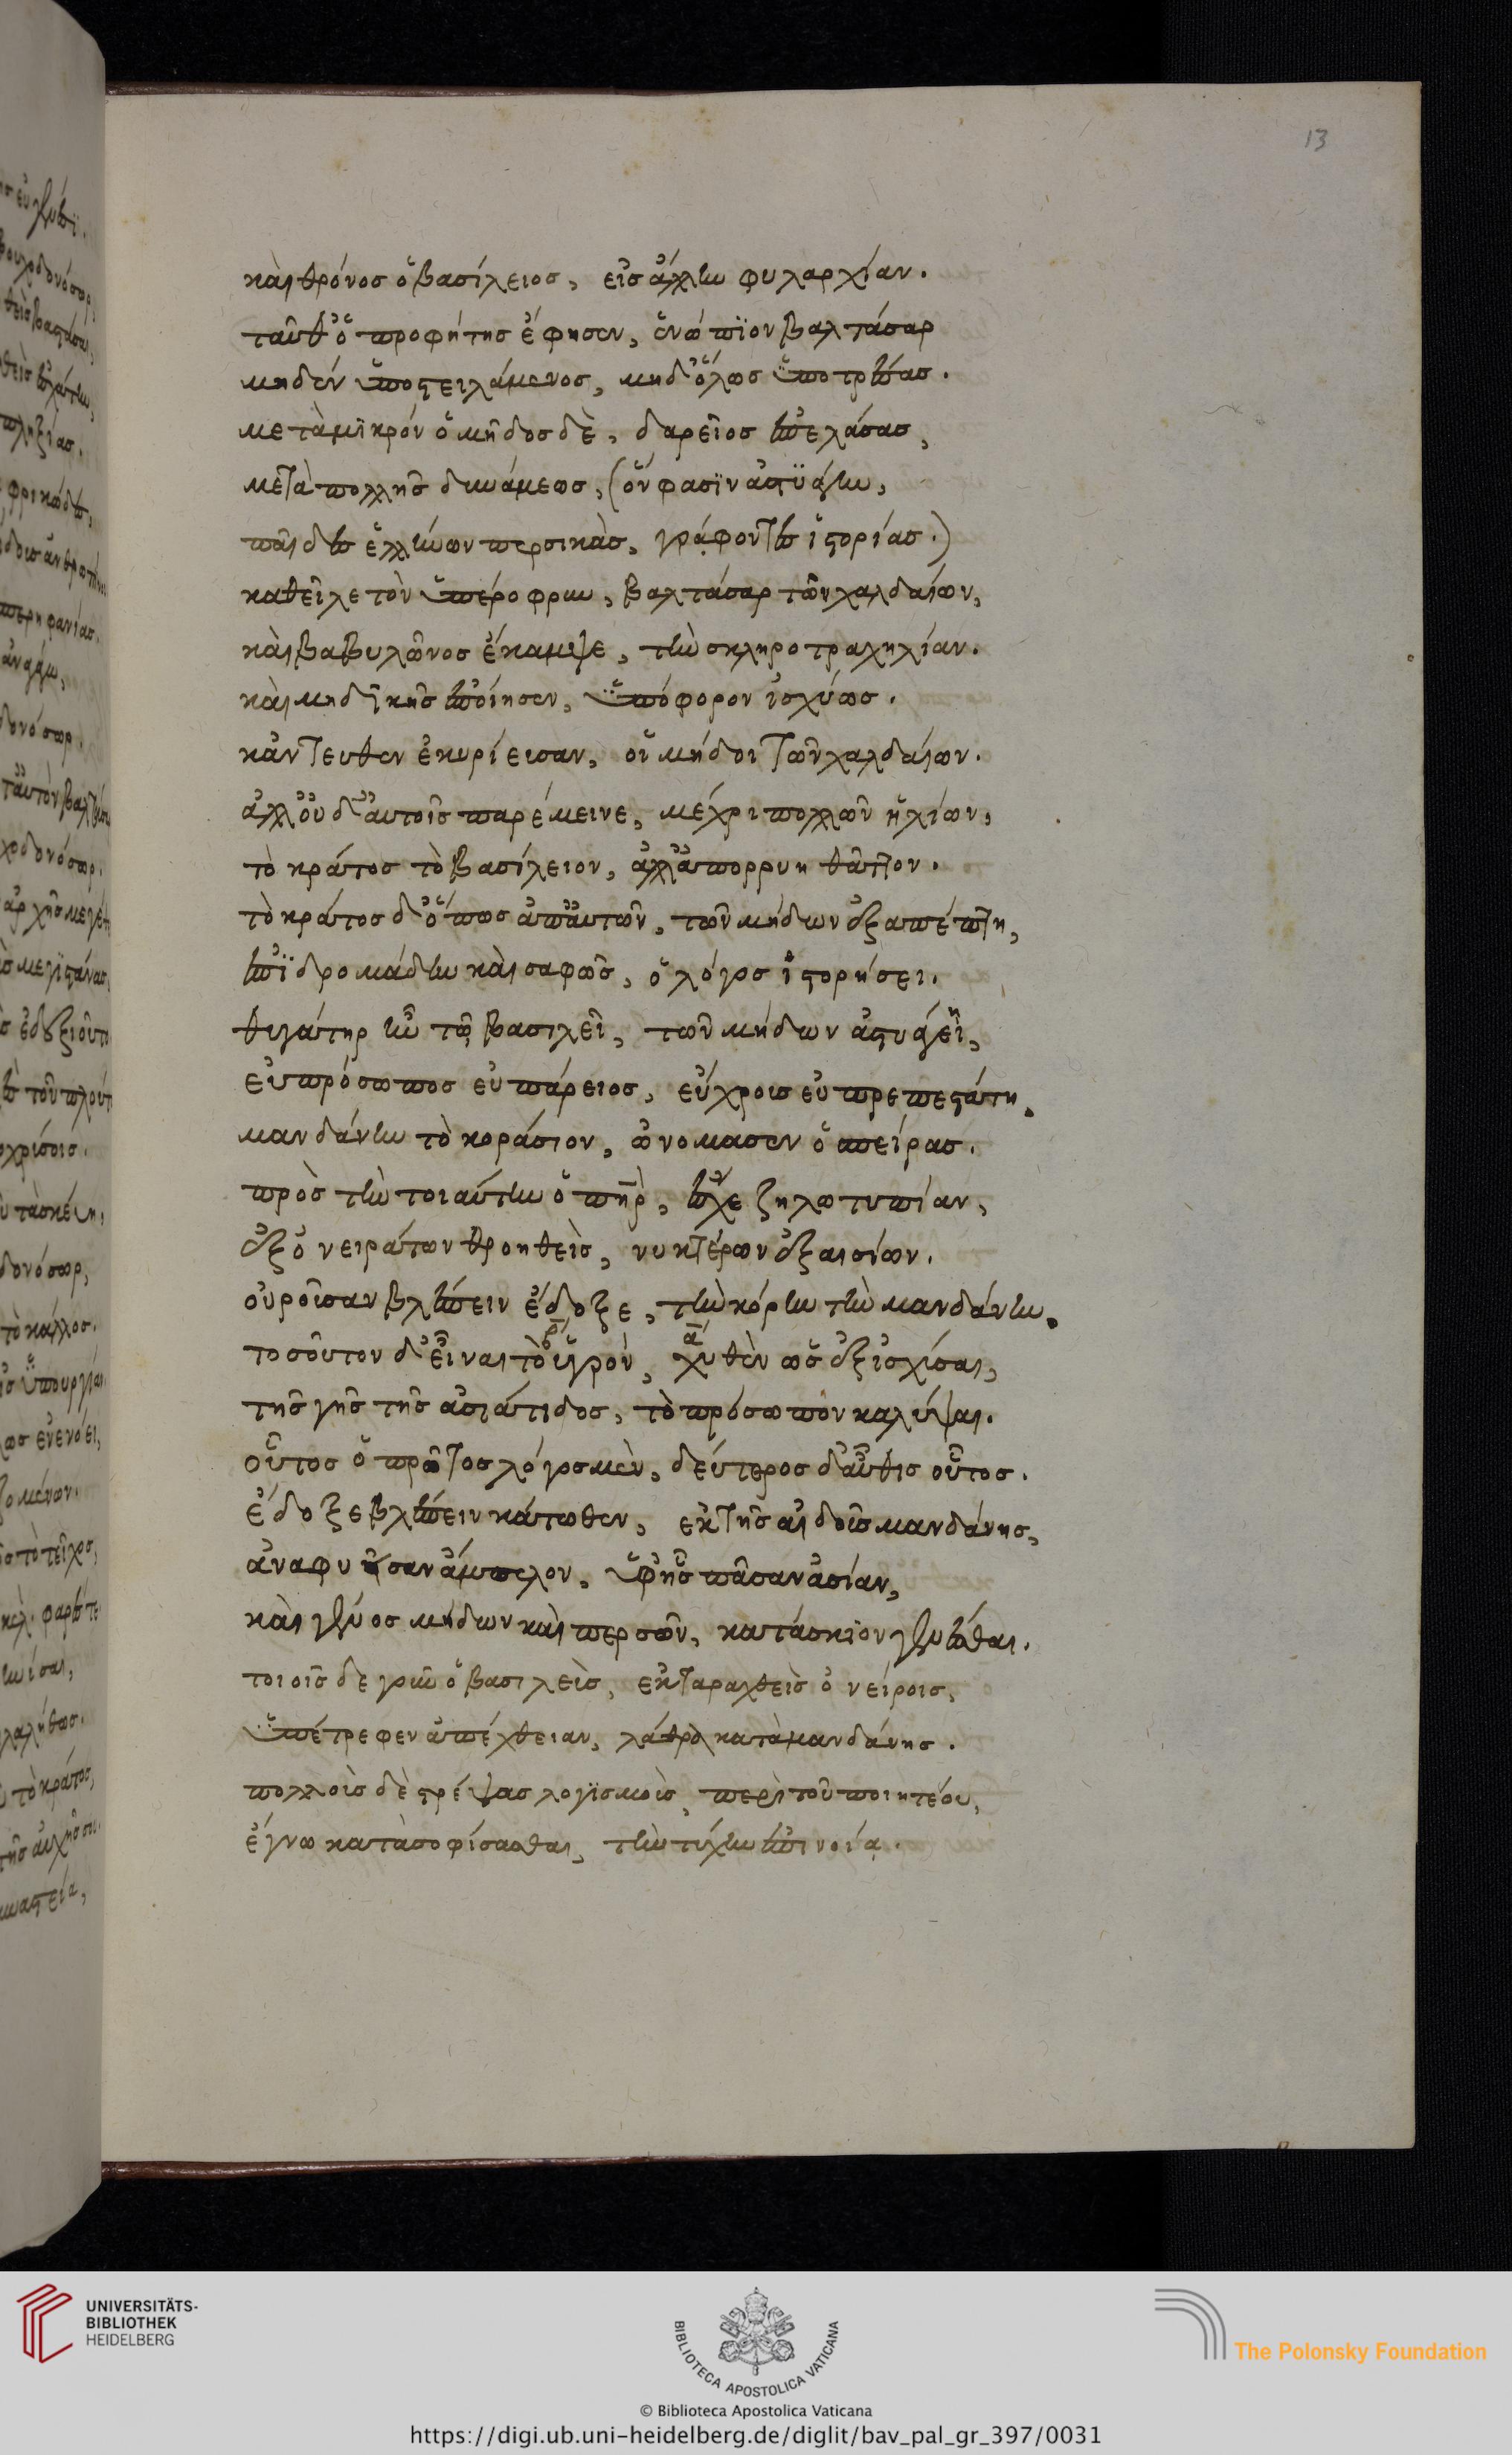 13
καὶ θρόνος ὁ βασίλειος, εἰς ἄλλην φυλαρχίαν.
ταῦθ' ὁ προφήτης ἔφησεν, ἐνώπϊον βαλτάσαρ
μηδὲν ὑποστειλάμενος, μηδ' ὅλως ὑποτρέσας.
μετὰ μικρὸν ὁ μῆδος δὲ, δαρεῖος ἐπελάσας,
μετὰ πολλῆς δυνάμεως, (ὅν φασϊν ἀστϋάγην,
παῖδες ἑλλήνων περσικὰς, γράφοντες ἱστορίας.)
καθεῖλε τὸν ὑπέροφρυν, βαλτάσαρ τῶν χαλδαίων,
καὶ βαβυλῶνος ἔκαμψε, τὴν σκληροτραχηλίαν.
καὶ μηδικῆς ἐποίησεν, ὑπόφορον ἰσχύως.
κἀντεῦθεν ἐκυρίευσαν, οἱ μῆδοι τῶν χαλδαίων.
ἀλλ' οὐδ' αὐτοῖς παρέμεινε, μέχρι πολλῶν ἡλίων,
τὸ κράτος τὸ βασίλειον, ἀλλ' ἀπορρυῆ θᾶττον.
τὸ κράτος δ' ὅπως ἀπ' αὐτῶν, τῶν μήδων ἐξαπέπτη,
ἐπϊδρομάδην καὶ σαφῶς, ὁ λόγος ἱστορήσει.
θυγάτηρ ἦν τῷ βασιλεῖ, τῶν μήδων ἀστυάγει,
εὐπρόσωπος εὐπάρειος, εὔχρους εὐπρεπεστάτη.
μανδάνην τὸ κοράσιον, ὠνόμασεν ὁ σπείρας.
πρὸς τὴν τοιαύτην ὁ πηρ, ἔσχε ζηλοτυπίαν,
ἐξ ὀνειράτων θροηθεὶς, νυκτέρων ἐξαισίων.
οὐροῦσαν βλέπειν ἔδοξε, τὴν κόρην τὴν μανδάνην.
τοσοῦτον δ' εἶναι τὸ ὑγρὸν, χυθὲν ὡς ἐξισχῦσαι,
β α
τῆς γῆς τῆς ἀσιάτιδος, τὸ πρόσωπον καλύψαι.
οὗτος ὁ πρῶτος λόγος μὲν, δεύτερος δ' αὖθις οὗτος.
ἔδοξε βλέπειν κάτωθεν, ἐκ τῆς αἰδοῦς μανδάνης,
ἀναφυῆσαν ἄμπελον, ὑφ' ἧς πᾶσαν ἀσίαν,
καὶ γένος μήδων καὶ περσῶν, κατάσκϊον γενέσθαι.
τοιοῖσδε γοῦν ὁ βασιλεὺς, ἐκταραχθεὶς ὀνείροις,
ὑπέτρεφεν ἀπέχθειαν, λάθρα κατὰ μανδάνης.
πολλοὺς δὲ στρέψας λογϊσμοὺς, περὶ τοῦ ποιητέου,
ἔγνω κατασοφίσασθαι, τὴν τύχην ἐπινοίᾳ.
UNIVERSITÄTS-
BIBLIOTHEK
HEIDELBERG
BIBLIOTECA APOSTOLICA VATICANA
The Polonsky Foundation
© Biblioteca Apostolica Vaticana
https://digi.ub.uni-heidelberg.de/diglit/bav_pal_gr_397/0031